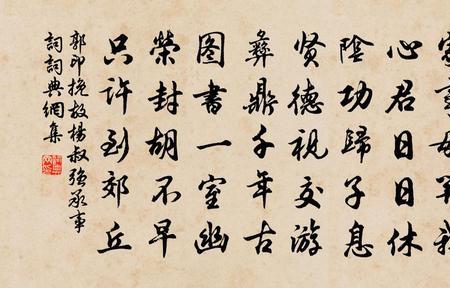 心君日日休
陰功歸子息
贤德視交游
彝鼎千年古
图書一室幽
榮封胡不早
只許到郊丘
郭印挽故楊叔強承事
詞詞典網集